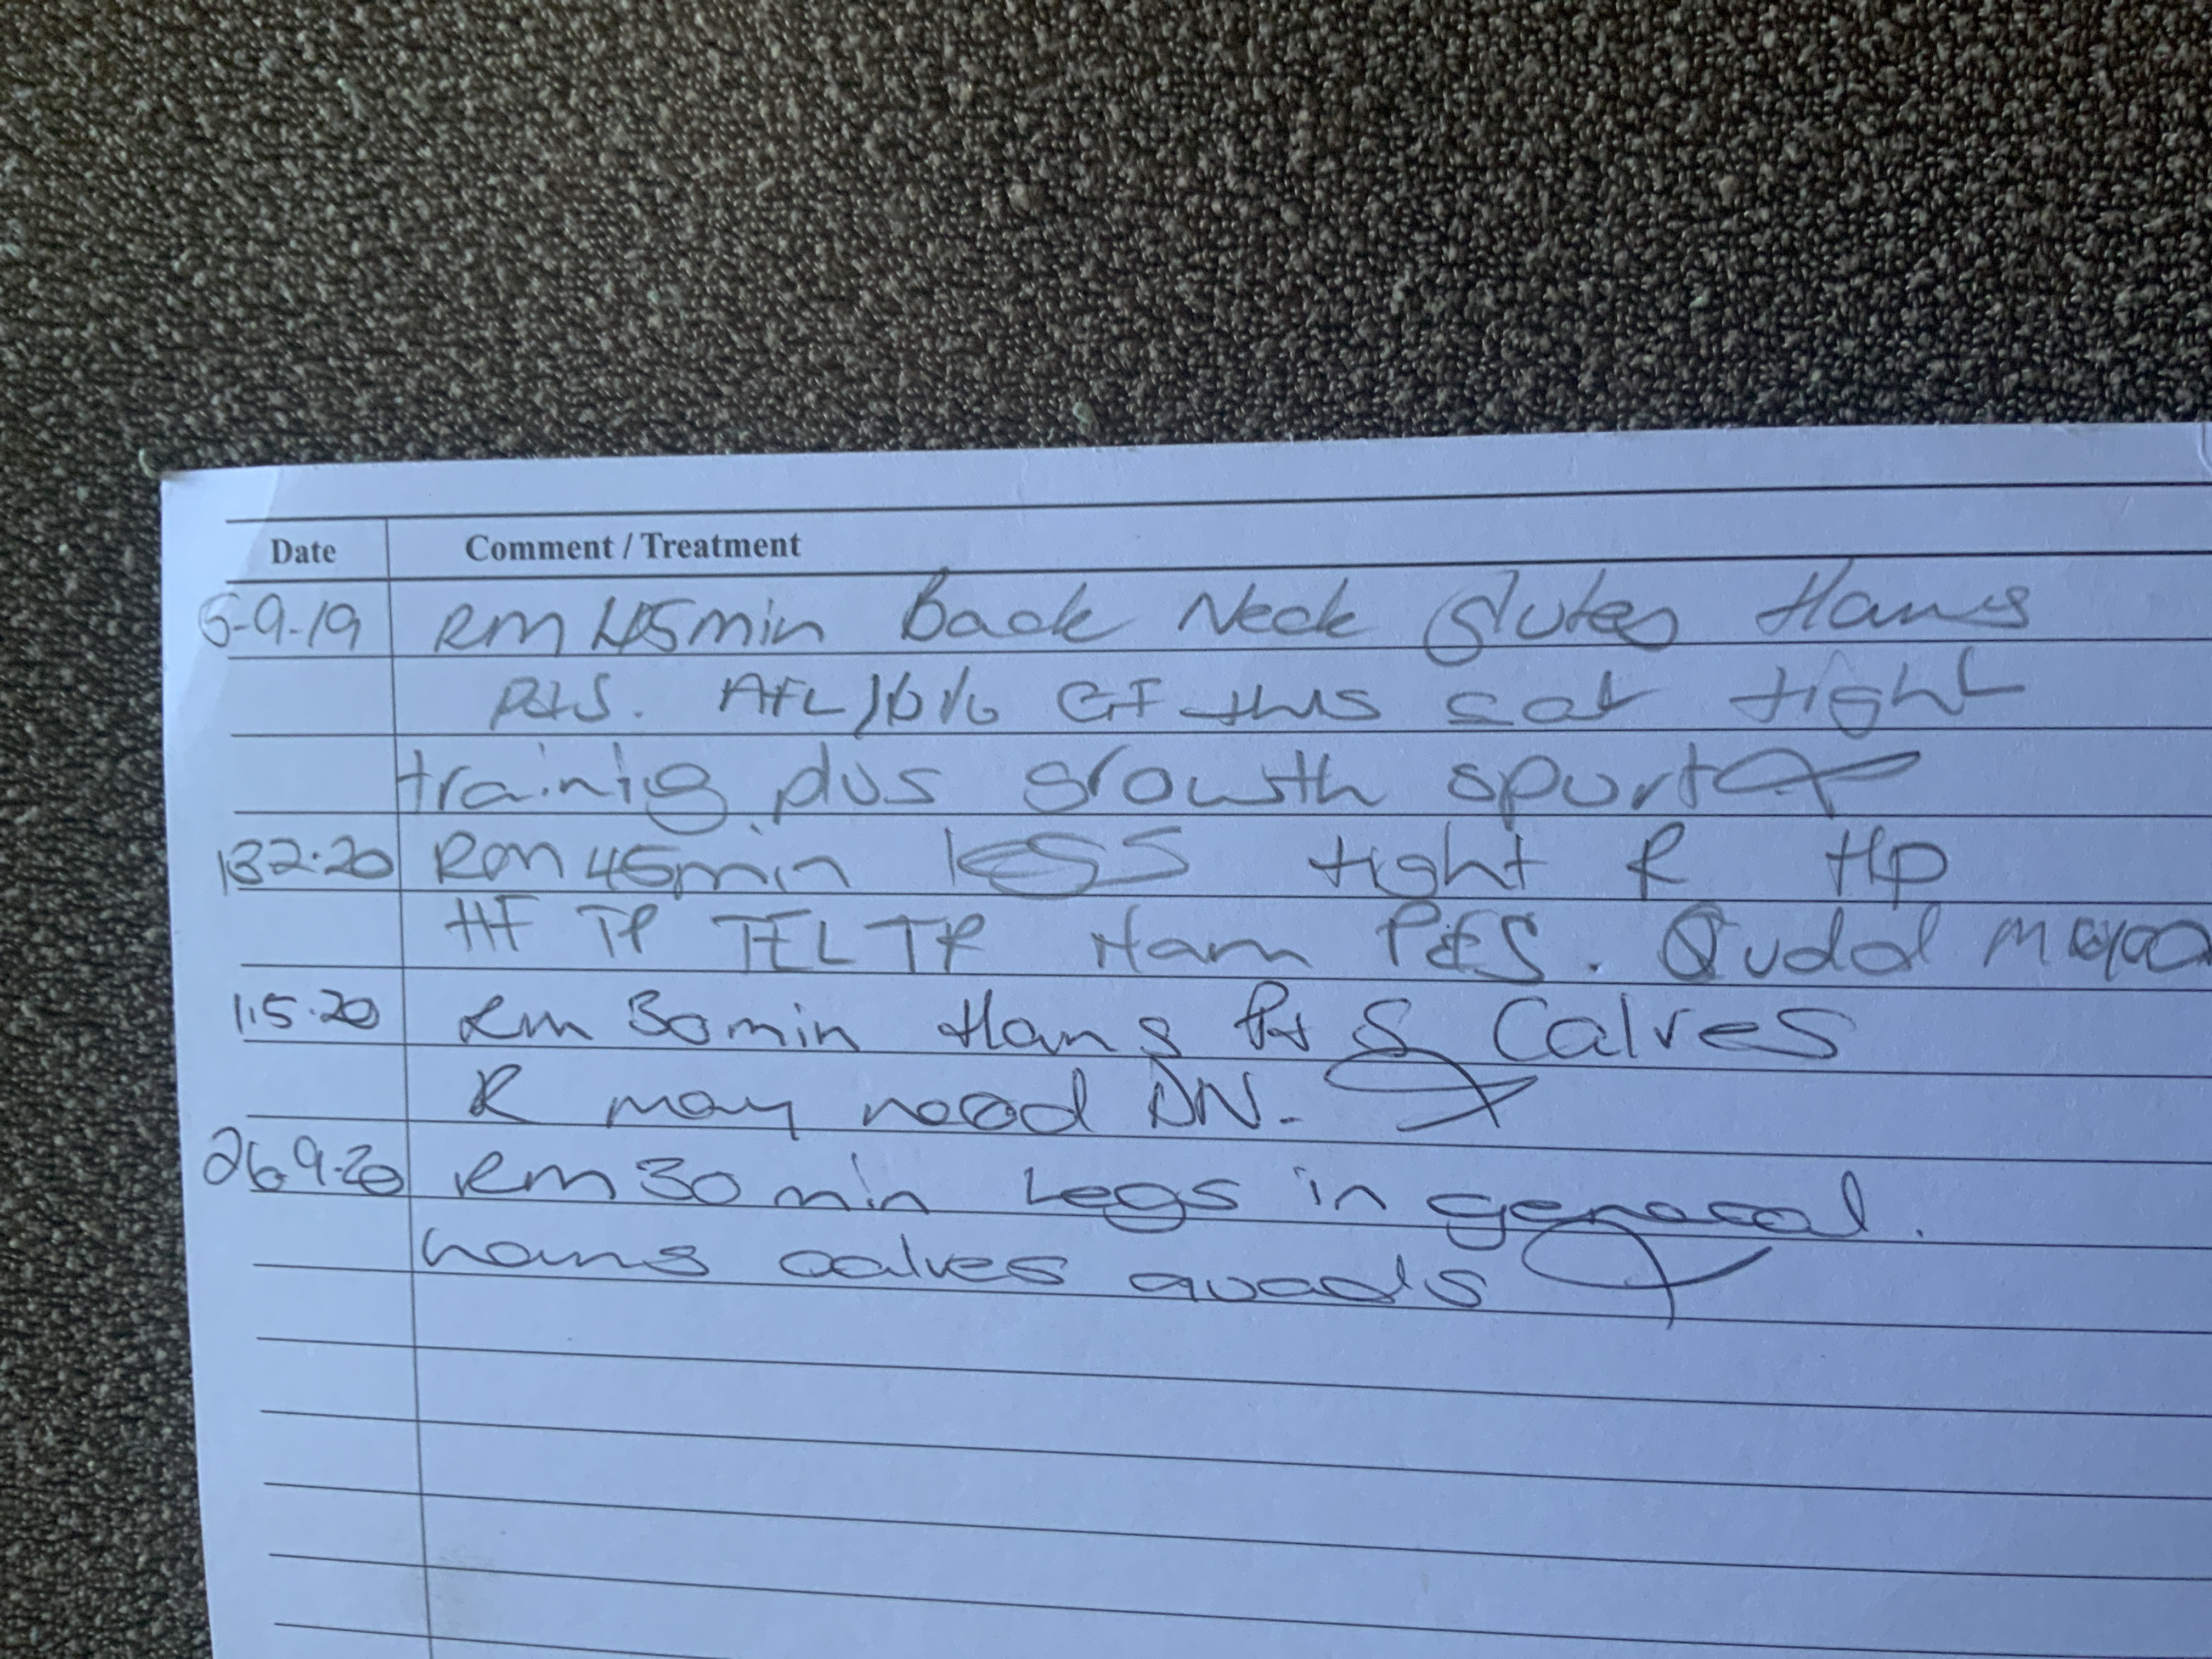 Date Comment / Treatment
5-9-19 RM 45min Back Neck Glutes Hams
P&S. AFL GF this sat tight
training plus growth spurt
13.2.20 RM 45min less tight R Hip
HF TP TFL TP Ham P&S. Quad
1.5.20 RM 30min Hams P&S Calves
R may need DN.
26.9.20 RM 30 min Legs in general.
hams calves quads